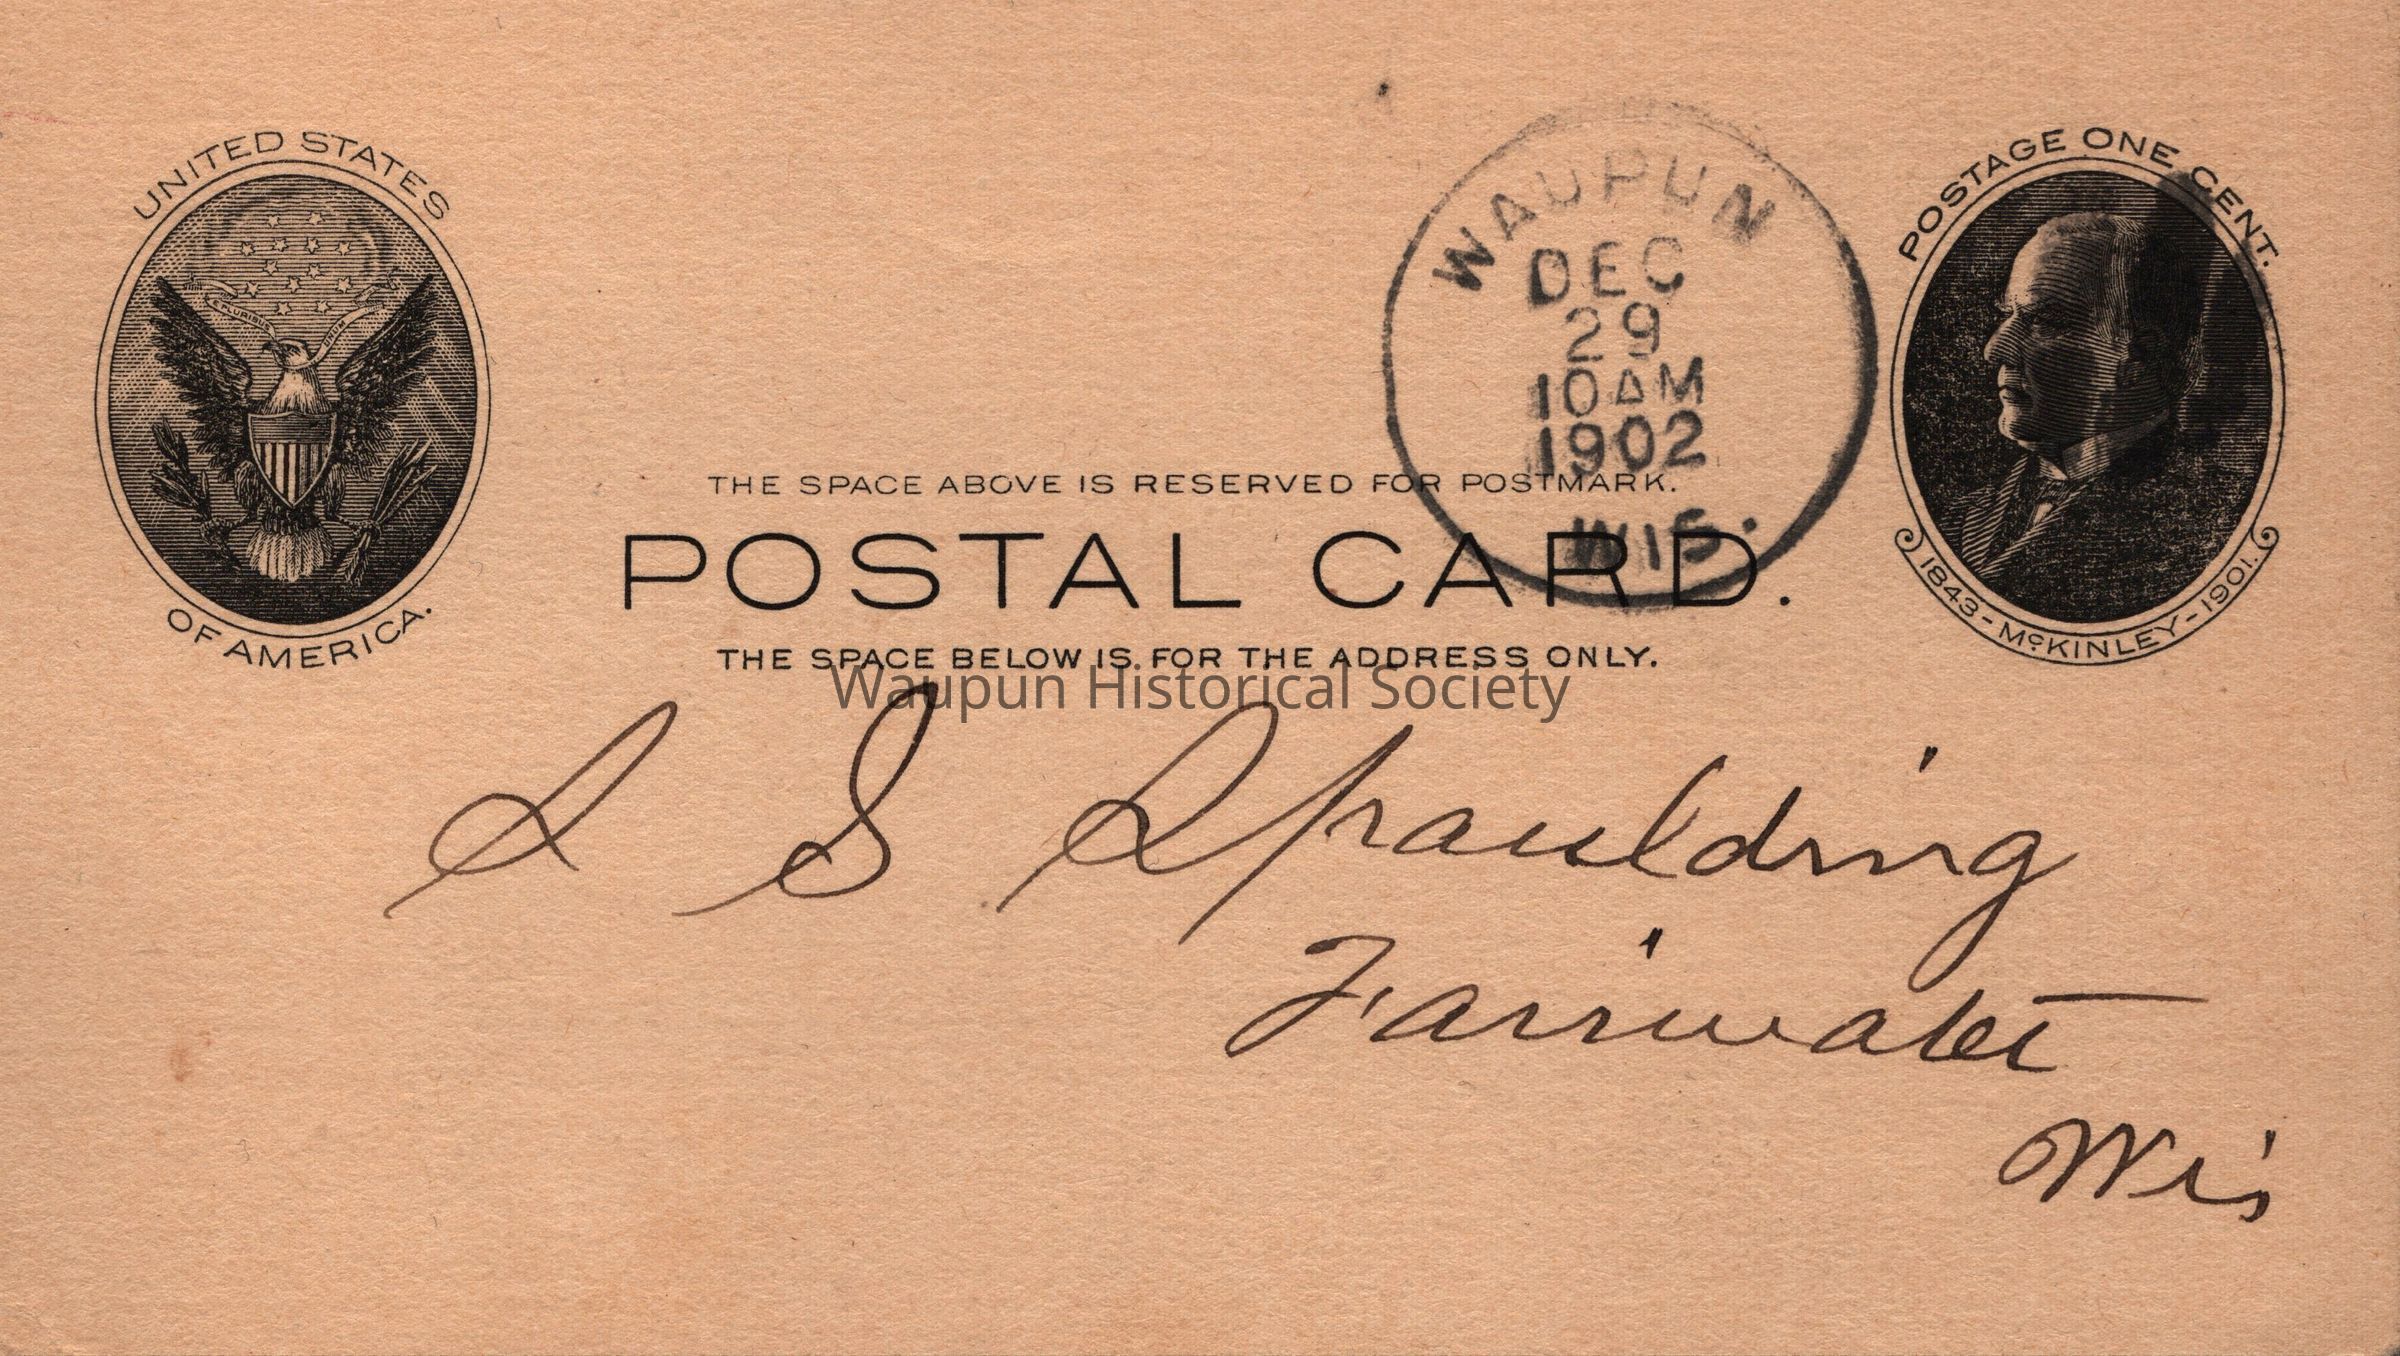 UNITED STATES
E PLURIBUS UNUM
OF AMERICA.
WAUPUN
DEC
29
10 AM
1902
WIS.
POSTAGE ONE CENT.
1843-McKINLEY-1901.
THE SPACE ABOVE IS RESERVED FOR POSTMARK.
POSTAL CARD.
THE SPACE BELOW IS FOR THE ADDRESS ONLY.
Waupun Historical Society
S S Spaulding
Fairwater
Wis